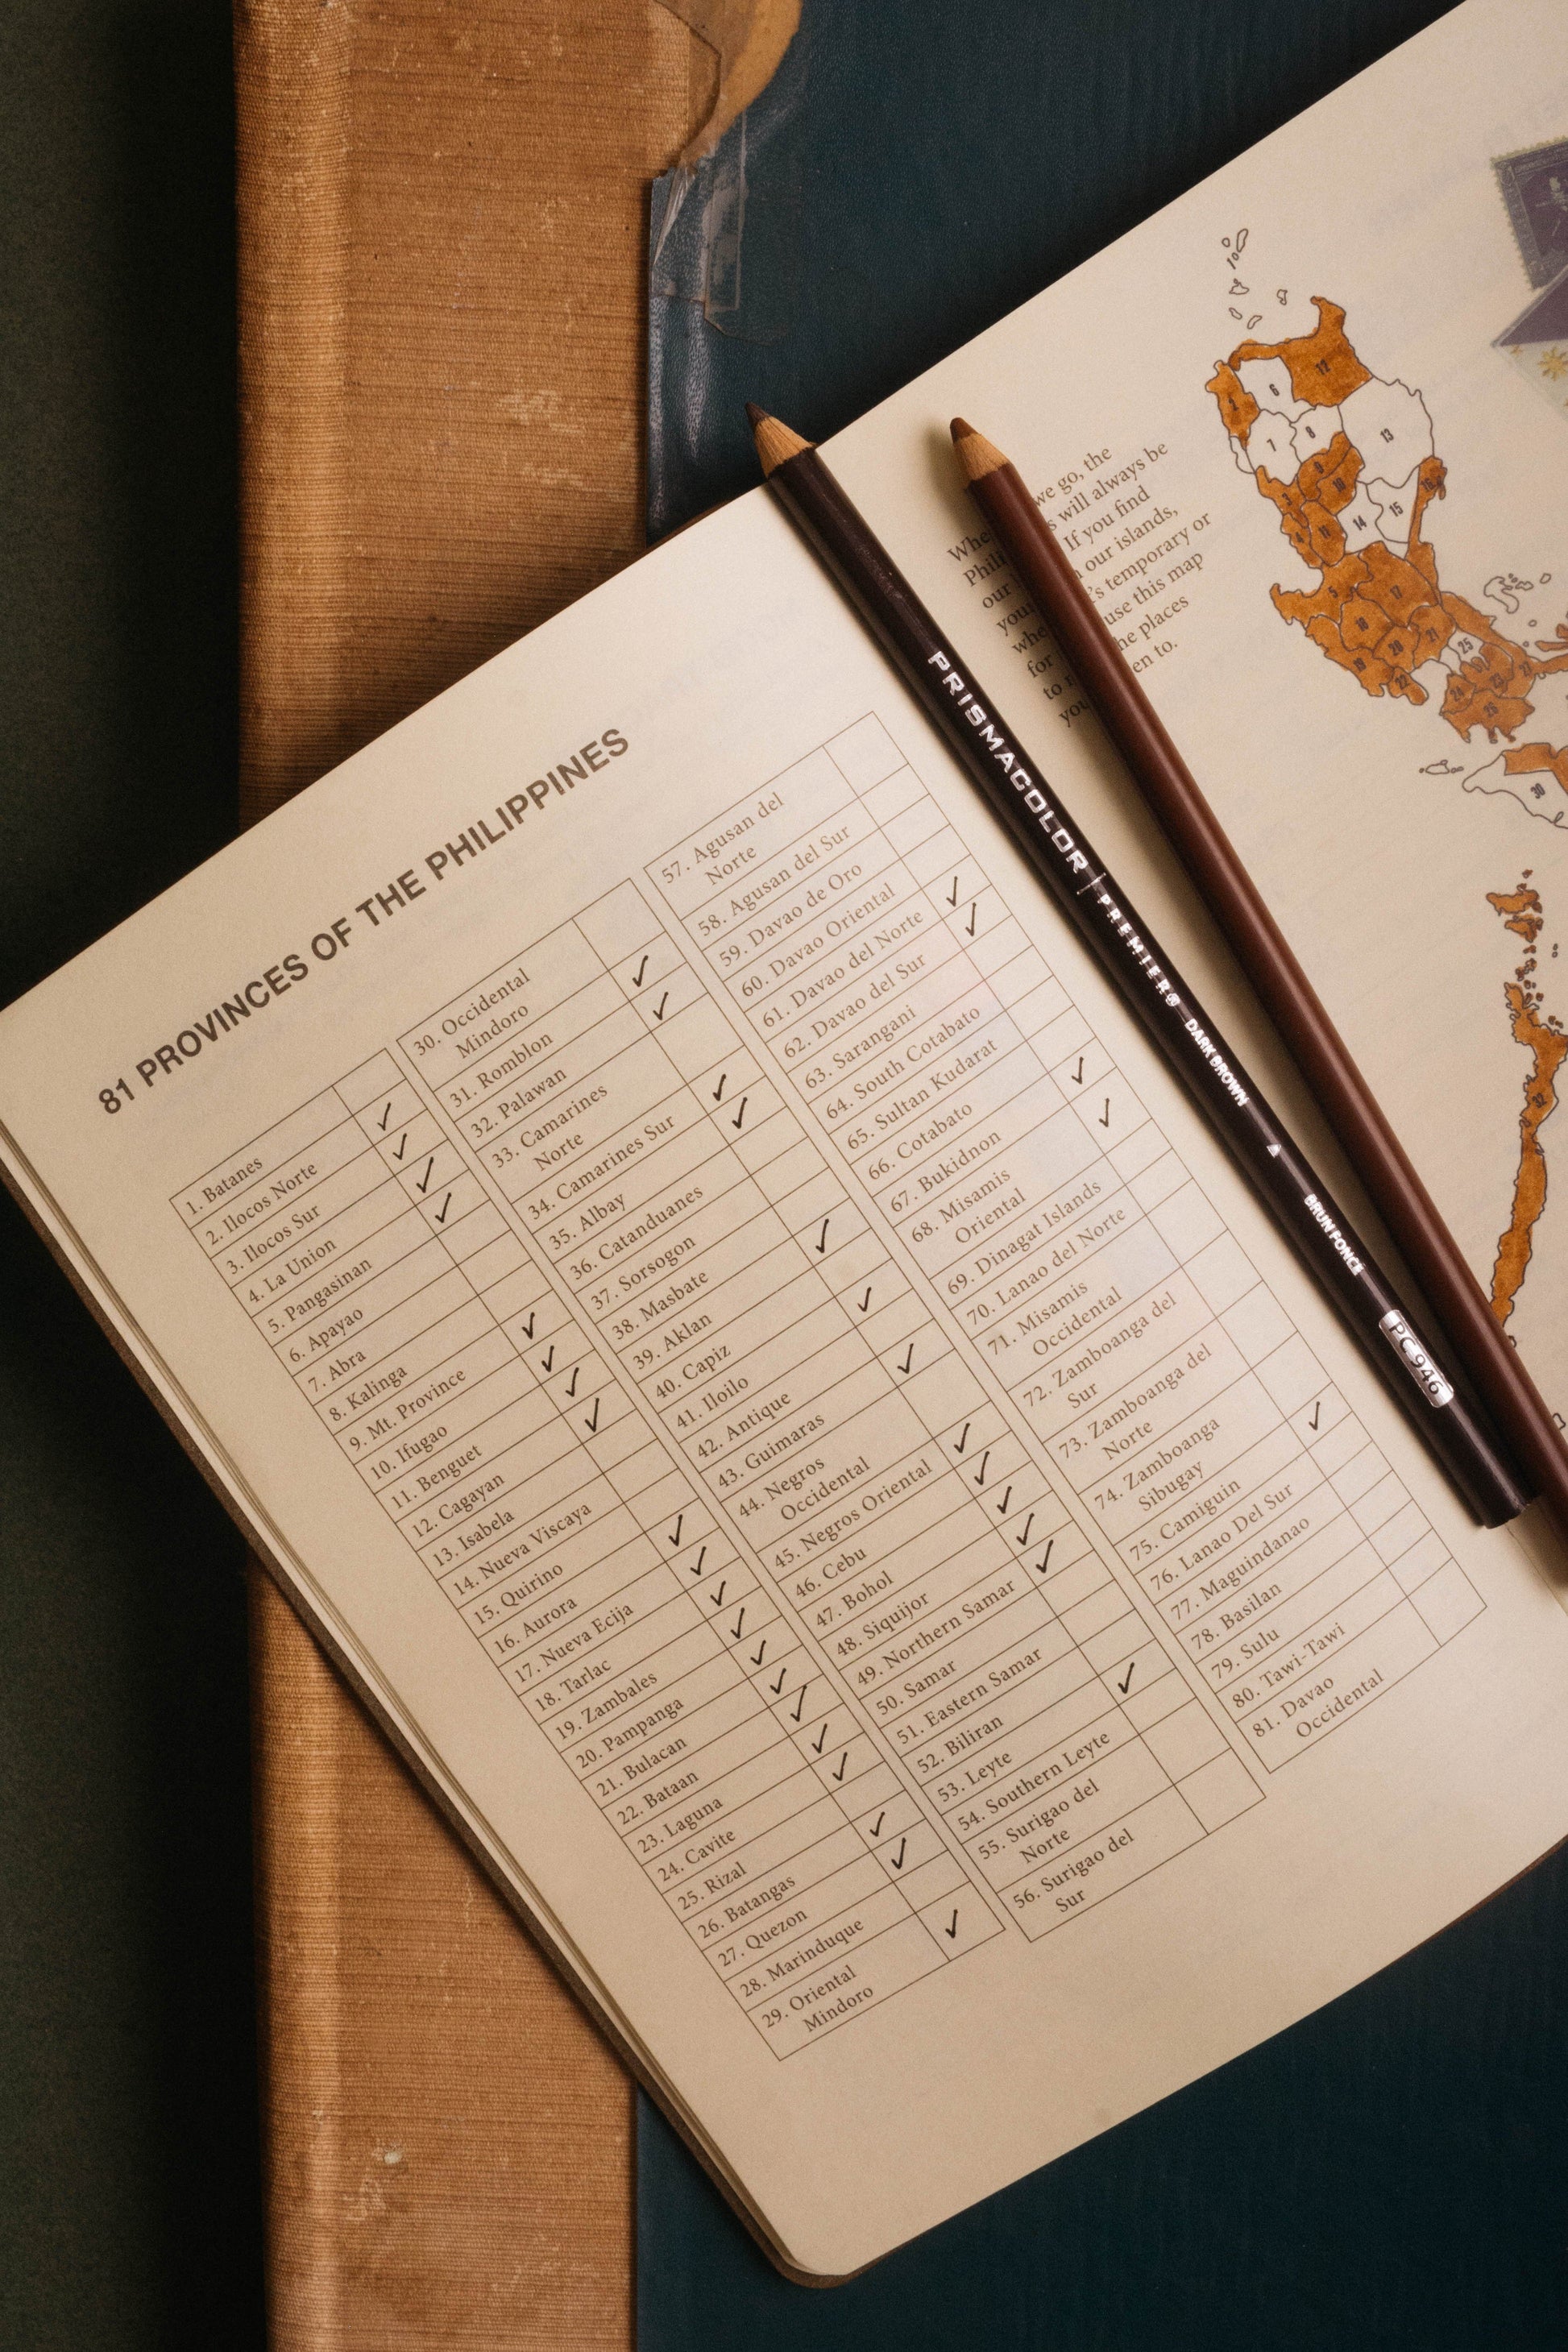 81 PROVINCES OF THE PHILIPPINES
1. Batanes
2. Ilocos Norte
3. Ilocos Sur
4. La Union
5. Pangasinan
6. Apayao
7. Abra
8. Kalinga
9. Mt. Province
10. Ifugao
11. Benguet
12. Cagayan
13. Isabela
14. Nueva Viscaya
15. Quirino
16. Aurora
17. Nueva Ecija
18. Tarlac
19. Zambales
20. Pampanga
21. Bulacan
22. Bataan
23. Laguna
24. Cavite
25. Rizal
26. Batangas
27. Quezon
28. Marinduque
29. Oriental
Mindoro
30. Occidental
Mindoro
31. Romblon
32. Palawan
33. Camarines
Norte
34. Camarines Sur
35. Albay
36. Catanduanes
37. Sorsogon
38. Masbate
39. Aklan
40. Capiz
41. Iloilo
42. Antique
43. Guimaras
44. Negros
Occidental
45. Negros Oriental
46. Cebu
47. Bohol
48. Siquijor
49. Northern Samar
50. Samar
51. Eastern Samar
52. Biliran
53. Leyte
54. Southern Leyte
55. Surigao del
Norte
56. Surigao del
Sur
57. Agusan del
Norte
58. Agusan del Sur
59. Davao de Oro
60. Davao Oriental
61. Davao del Norte
62. Davao del Sur
63. Sarangani
64. South Cotabato
65. Sultan Kudarat
66. Cotabato
67. Bukidnon
68. Misamis
Oriental
69. Dinagat Islands
70. Lanao del Norte
71. Misamis
Occidental
72. Zamboanga del
Sur
73. Zamboanga del
Norte
74. Zamboanga
Sibugay
75. Camiguin
76. Lanao Del Sur
77. Maguindanao
78. Basilan
79. Sulu
80. Tawi-Tawi
81. Davao
Occidental
PRISMACOLOR | PREMIER® DARK BROWN ▲ BRUN FONCÉ PC946
we go, the
will always be
our If you find
our islands,
temporary or
for use this map
to places
to.
12
6
2
7
8
13
9
10
3
16
14
15
4
11
5
17
18
20
21
19
22
25
24
23
27
26
30
32